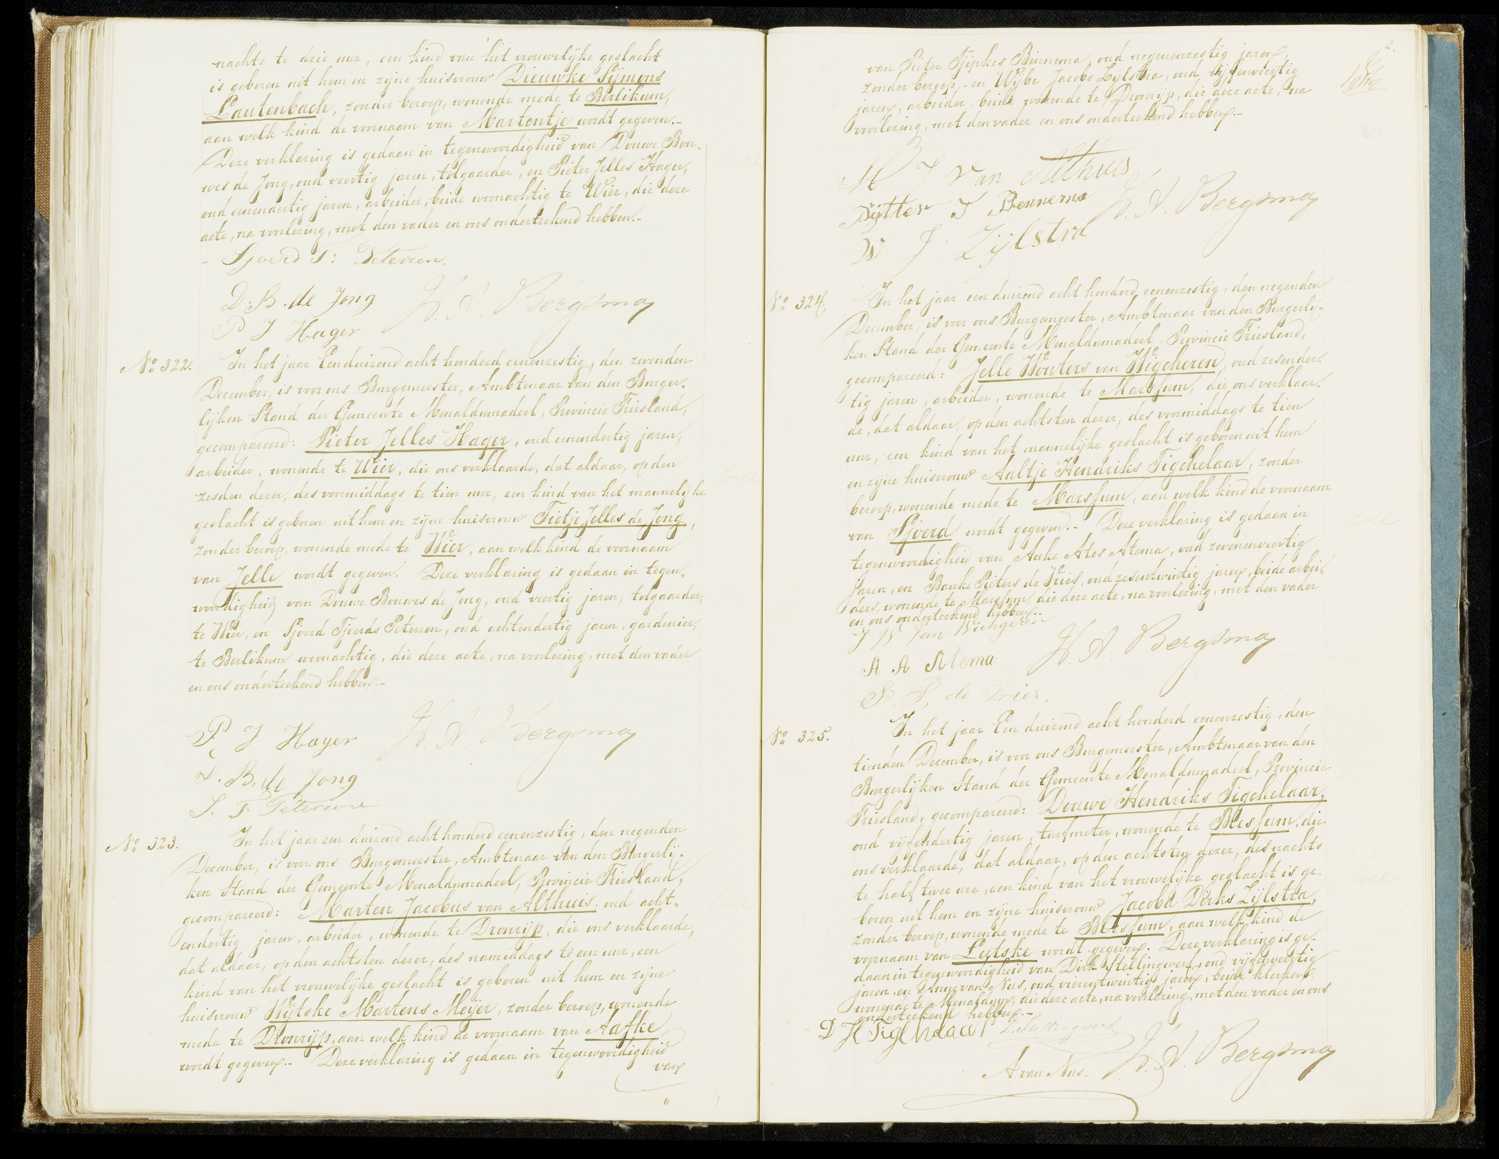 nachts te drie ure, een kind van het vrouwelijke geslacht
is geboren uit hem en zijne huisvrouw Dieuwke Symons
Lautenbach, zonder beroep, wonende mede te Berlikum,
aan welk kind de voornaam van Martentje wordt gegeven.-
Deze verklaring is gedaan in tegenwoordigheid van Douwe Bou-
wes de Jong, oud veertig jaren, tolgaarder, en Pieter Jelles Hager,
oud eenendertig jaren, arbeider, beide woonachtig te Wier, die deze
acte, na voorlezing, met den vader en ons onderteekend hebben.-
Sjoerd T: Peterson.
D. B. de Jong
P J Hager
H. A. Bergsma
No 322. In het jaar Eenduizend acht honderd eenenzestig, den zevenden
December, is voor ons Burgemeester, Ambtenaar van den Burger-
lijken Stand der Gemeente Menaldumadeel, Provincie Friesland,
gecompareerd: Pieter Jelles Hager, oud eenendertig jaren,
arbeider, wonende te Wier, die ons verklaarde, dat aldaar, op den
zesden dezer, des voormiddags te tien ure, een kind van het mannelijke
geslacht is geboren uit hem en zijne huisvrouw Tietje Jelles de Jong,
zonder beroep, wonende mede te Wier, aan welk kind de voornaam
van Jelle wordt gegeven. Deze verklaring is gedaan in tegen-
woordigheid van Douwe Bouwes de Jong, oud veertig jaren, tolgaarder,
te Wier, en Sjoerd Tjeerds Peterson, oud achtendertig jaren, gardenier,
te Berlikum woonachtig, die deze acte, na voorlezing, met den vader
en ons onderteekend hebben.-
P J Hager
H. A. Bergsma
D. B. de Jong
S. T. Peterson
No 323. In het jaar een duizend acht honderd eenenzestig, den negenden
December, is voor ons Burgemeester, Ambtenaar van den Burgerlij-
ken Stand der Gemeente Menaldumadeel, Provincie Friesland,
gecompareerd: Marten Jacobus van Althuis, oud acht-
endertig jaren, arbeider, wonende te Dronrijp, die ons verklaarde,
dat aldaar, op den achtsten dezer, des namiddags te een ure, een
kind van het vrouwelijke geslacht is geboren uit hem en zijne
huisvrouw Wytske Martens Meijer, zonder beroep, wonende
mede te Dronrijp, aan welk kind de voornaam van Aafke
wordt gegeven.- Deze verklaring is gedaan in tegenwoordigheid
van
van Pieter Sjipkes Binnema, oud negenenzestig jaren,
zonder beroep, en Wijbe Jacobs Zylstra, oud vijfenveertig
jaren, arbeider, beide wonende te Dronrijp, die deze acte, na
voorlezing, met den vader en ons onderteekend hebben.-
M J van Althuis
H. A. Bergsma
W J. Zijlstra
No 324. In het jaar een duizend acht honderd eenenzestig, den negenden
December, is voor ons Burgemeester, Ambtenaar van den Burgerlij-
ken Stand der Gemeente Menaldumadeel, Provincie Friesland,
gecompareerd: Jelle Wouters van Wigcheren, oud zesender-
tig jaren, arbeider, wonende te Marssum, die ons verklaar-
de, dat aldaar, op den achtsten dezer, des voormiddags te tien
ure, een kind van het mannelijke geslacht is geboren uit hem
en zijne huisvrouw Aaltje Hendriks Tigchelaar, zonder
beroep, wonende mede te Marssum, aan welk kind de voornaam
van Sjoerd wordt gegeven.- Deze verklaring is gedaan in
tegenwoordigheid van Auke Ales Atema, oud zevenenveertig
jaren, en Bauke Pieters de Vries, oud zesentwintig jaren, beide arbei-
ders, wonende te Marssum die deze acte, na voorlezing, met den vader
en ons onderteekend hebben.-
J W van Wichgeren
H. A. Bergsma
A A Atema
P. de Vries.
No 325. In het jaar Een duizend acht honderd eenenzestig, den
tienden December, is voor ons Burgemeester, Ambtenaar van den
Burgerlijken Stand der Gemeente Menaldumadeel, Provincie
Friesland, gecompareerd: Douwe Hendriks Tigchelaar,
oud vijfendertig jaren, turfmeter, wonende te Blessum, die
ons verklaarde, dat aldaar, op den achtsten dezer, des nachts
te half twee ure, een kind van het vrouwelijke geslacht is ge-
boren uit hem en zijne huisvrouw Jacoba Dirks Zijlstra,
zonder beroep, wonende mede te Blessum, aan welk kind de
voornaam van Lijtske wordt gegeven. Deze verklaring is ge-
daan in tegenwoordigheid van Dirk Stellingwerf, oud vijfenveertig
jaren, en Anne van Nus, oud vierentwintig jaren, beide klerken,
woonachtig te Menaldum, die deze acte, na voorlezing, met den vader en ons
onderteekend hebben.-
D H Tigchelaar
H. A. Bergsma
A van Nus.